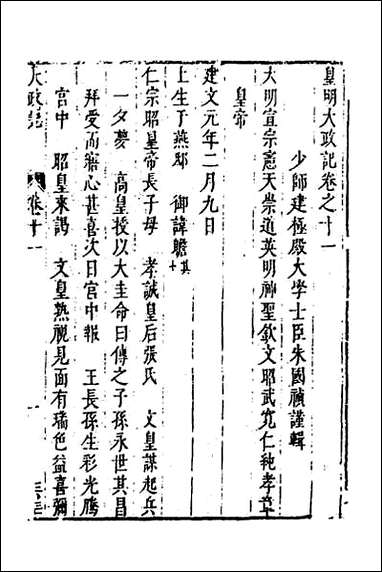 皇明大政記卷之十一
少師建極殿大學士臣朱國禎謹輯
大明宣宗憲天崇道英明神聖欽文昭武寬仁純孝章
皇帝
建文元年二月九日
上生于燕邸 御諱瞻其十
仁宗昭皇帝長子母 孝誠皇后張氏 文皇謀起兵
一夕夢 高皇授以大圭命曰傳之子孫永世其昌
拜受而寤心甚喜次日宮中報 王長孫生彩光騰
宮中 昭皇來謁 文皇熟視見面有瑞色益喜彌
大政記
卷十一
一